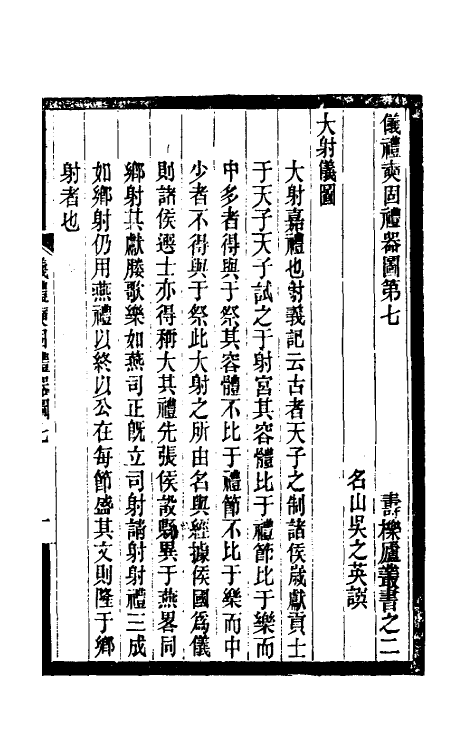 儀禮奭固禮器圖第七
壽櫟廬叢書之二
名山吳之英譔
大射儀圖
大射嘉禮也射義記云古者天子之制諸侯歲獻貢士
于天子天子試之于射宮其容體比于禮節比于樂而
中多者得與于祭其容體不比于禮節不比于樂而中
少者不得與于祭此大射之所由名與經據侯國爲儀
則諸侯選士亦得稱大其禮先張侯設縣異于燕畧同
鄉射其獻媵歌樂如燕司正旣立司射請射射禮三成
如鄉射仍用燕禮以終以公在每節盛其文則隆于鄉
射者也
儀禮奭固禮器圖七
一